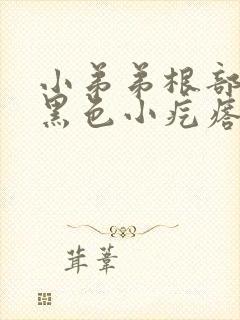 小弟弟根部
黑色小疙瘩
茸葦